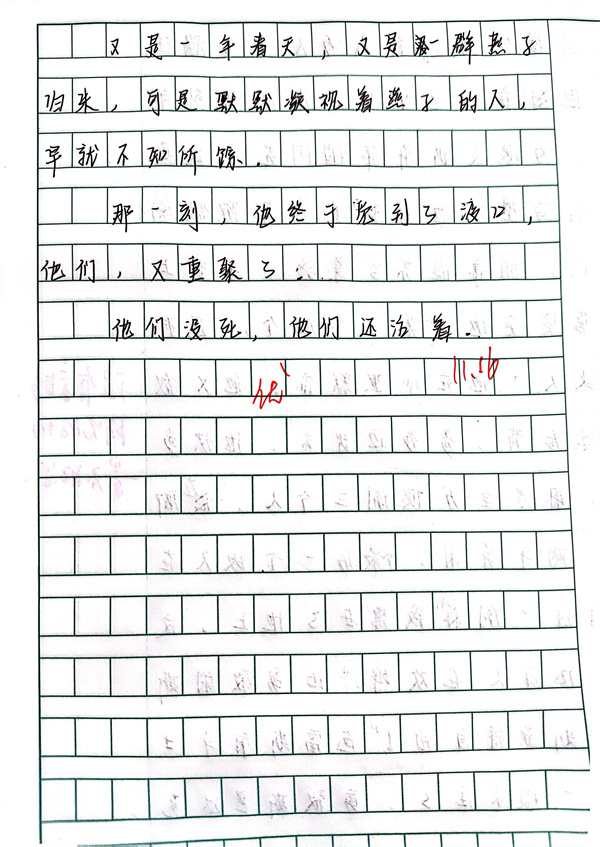 又是一年春天，又是一群燕子
归来，可是默默凝视着燕子的人，
早就不知所踪.
那一刻，他终于死别了渡口，
他们，又重聚了：
他们没死，他们还活着.
优
11.16